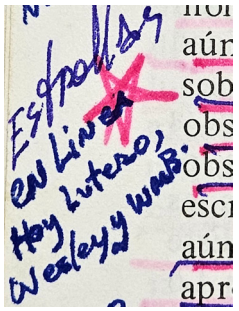 Estrellas
en Linea
Hoy Lutero,
Wesley y WMB.
aún
sob
obs
obs
escr
aúm
apr